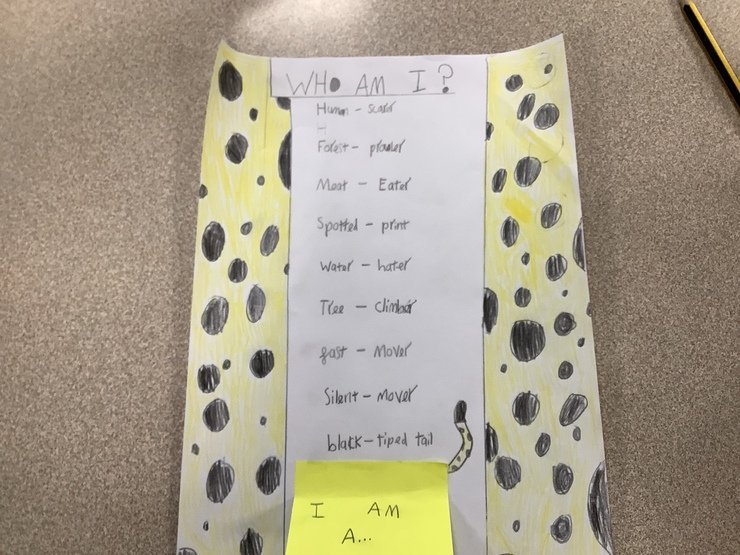 WHO AM I?
Human - scarer
H
Forest - prowler
Meat - Eater
Spotted - print
Water - hater
Tree - climber
fast - Mover
Silent - Mover
black-tiped tail
I AM
A...